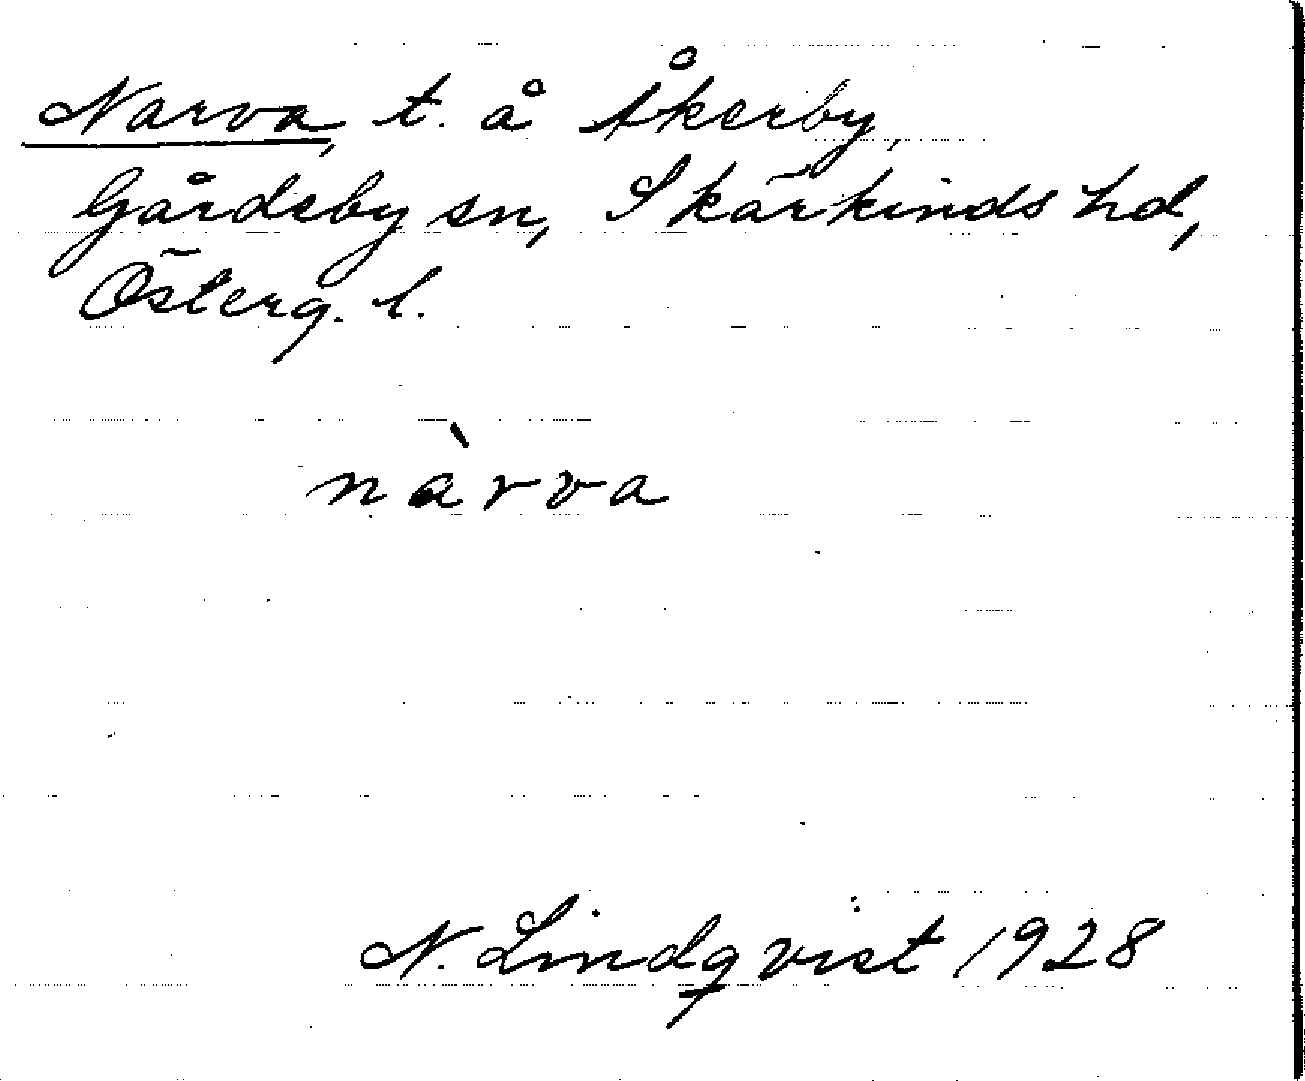 Narva, t. å Åkerby,
Gårdeby sn, Skärkinds hd,
Österg. l.
nàrva
N. Lindqvist 1928